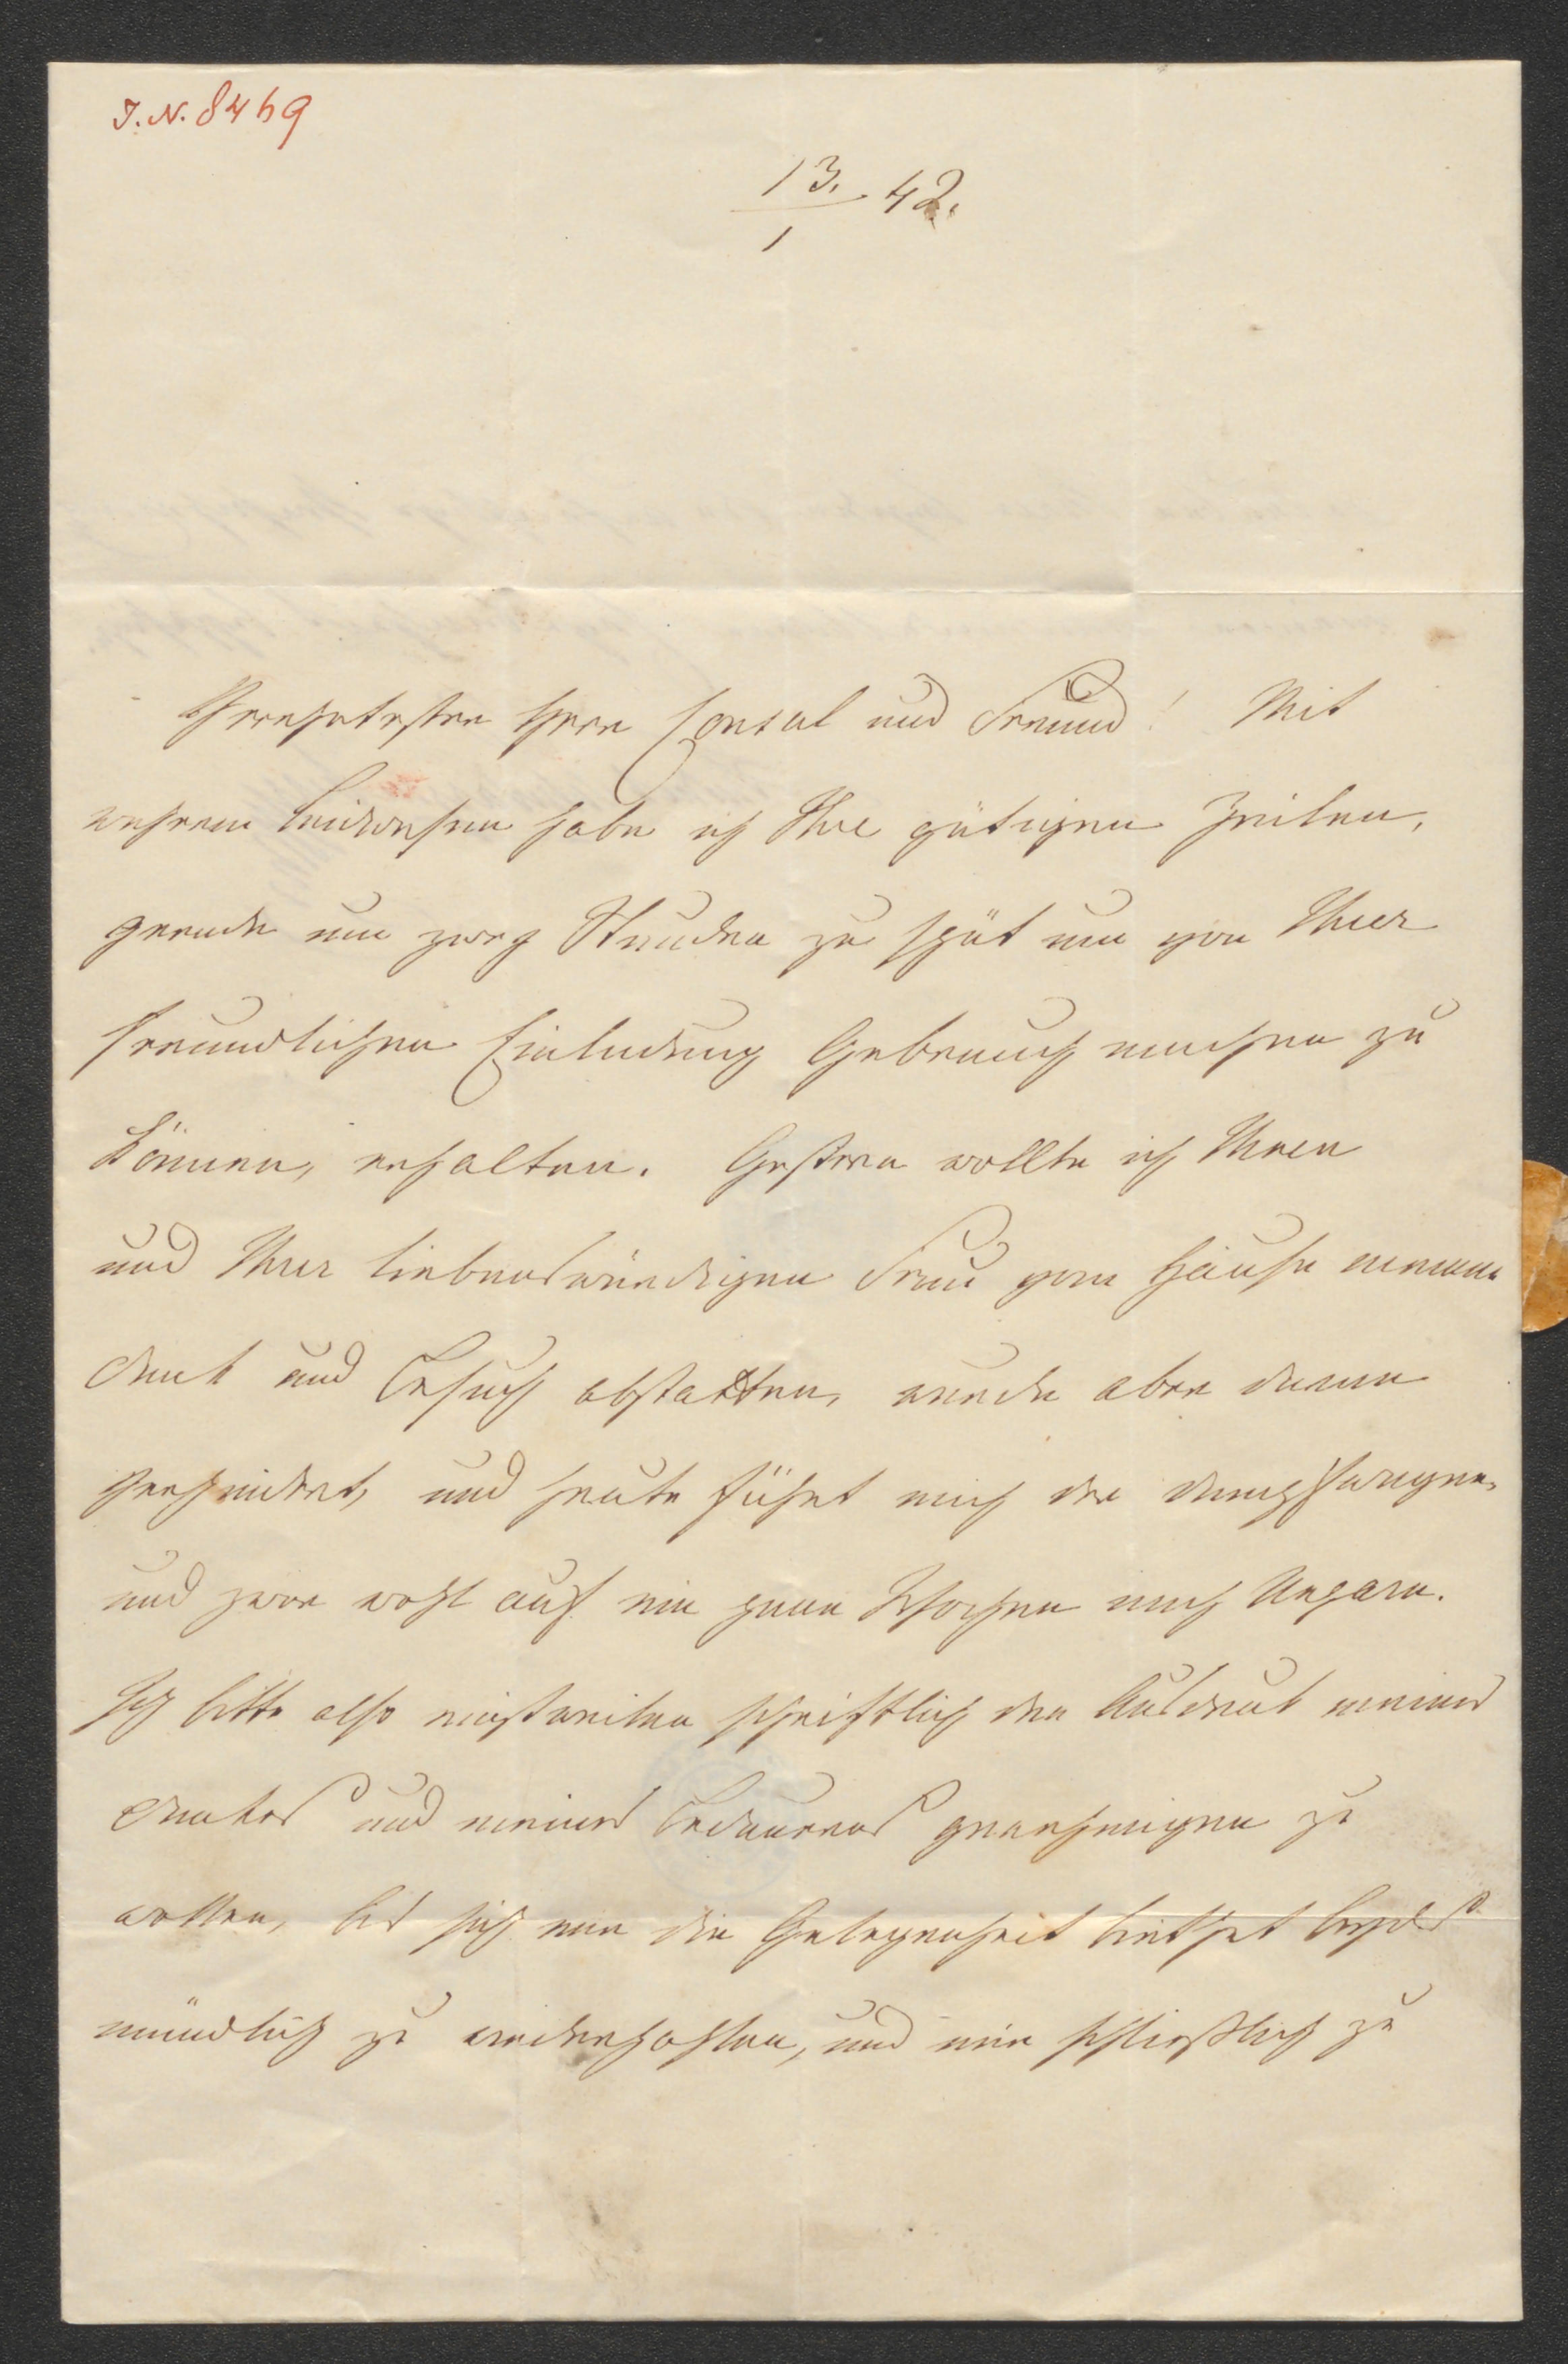 I.N. 8469
13./1 42.
Verehrtester Herr Consul und Freund! Mit
wahrem Leidwesen habe ich Ihre gütigen Zeilen,
gerade um zwey Stunden zu spät um von Ihrer
freundlichen Einladung Gebrauch machen zu
können, erhalten. Gestern wollte ich Ihnen
und Ihrer liebenswürdigen Frau vom Hause meinen
Dank und Besuch abstatten, wurde aber daran
verhindert, und heute führt mich der Dampfwagen,
und zwar wohl auf ein paar Wochen nach Ungarn.
Ich bitte also einstweilen schriftlich den Ausdruk meines
Dankes und meines Bedauerns genehmigen zu
wollen, bis sich mir die Gelegenheit biethet beydes
mündlich zu wiederhohlen, und mir schließlich zu